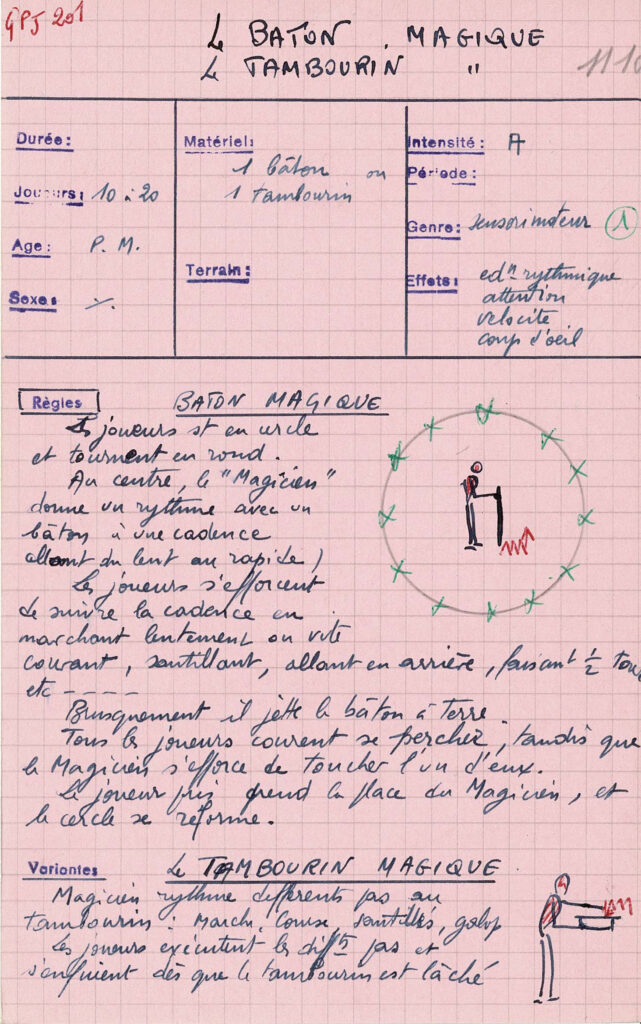 GPJ 201
Le BATON MAGIQUE
Le TAMBOURIN "
Durée:
Joueurs: 10 à 20
Age: P. M.
Sexe:
Matériel:
1 bâton ou
1 tambourin
Terrain:
Intensité: A
Période:
Genre: sensorimoteur 1
Effets: edn rythmique
attention
velocité
coup d'oeil
Règles
BATON MAGIQUE
Les joueurs st en cercle
et tournent en rond.
Au centre, le "Magicien"
donne un rythme avec un
bâton à une cadence
allant du lent au rapide)
Les joueurs s'efforcent
de suivre la cadence en
marchant lentement ou vite
courant, sautillant, allant en arrière, faisant 1/2 tour
etc ----
Brusquement il jette le bâton à terre.
Tous les joueurs courent se percher, tandis que
le Magicien s'efforce de toucher l'un d'eux.
Le joueur pris prend la place du Magicien, et
le cercle se reforme.
Variantes
Le TAMBOURIN MAGIQUE
Magicien rythme differents pas au
tambourin: Marche, Course, sautillés, galop
Les joueurs exécutent les diffts pas et
s'enfuient dès que le tambourin est lâché